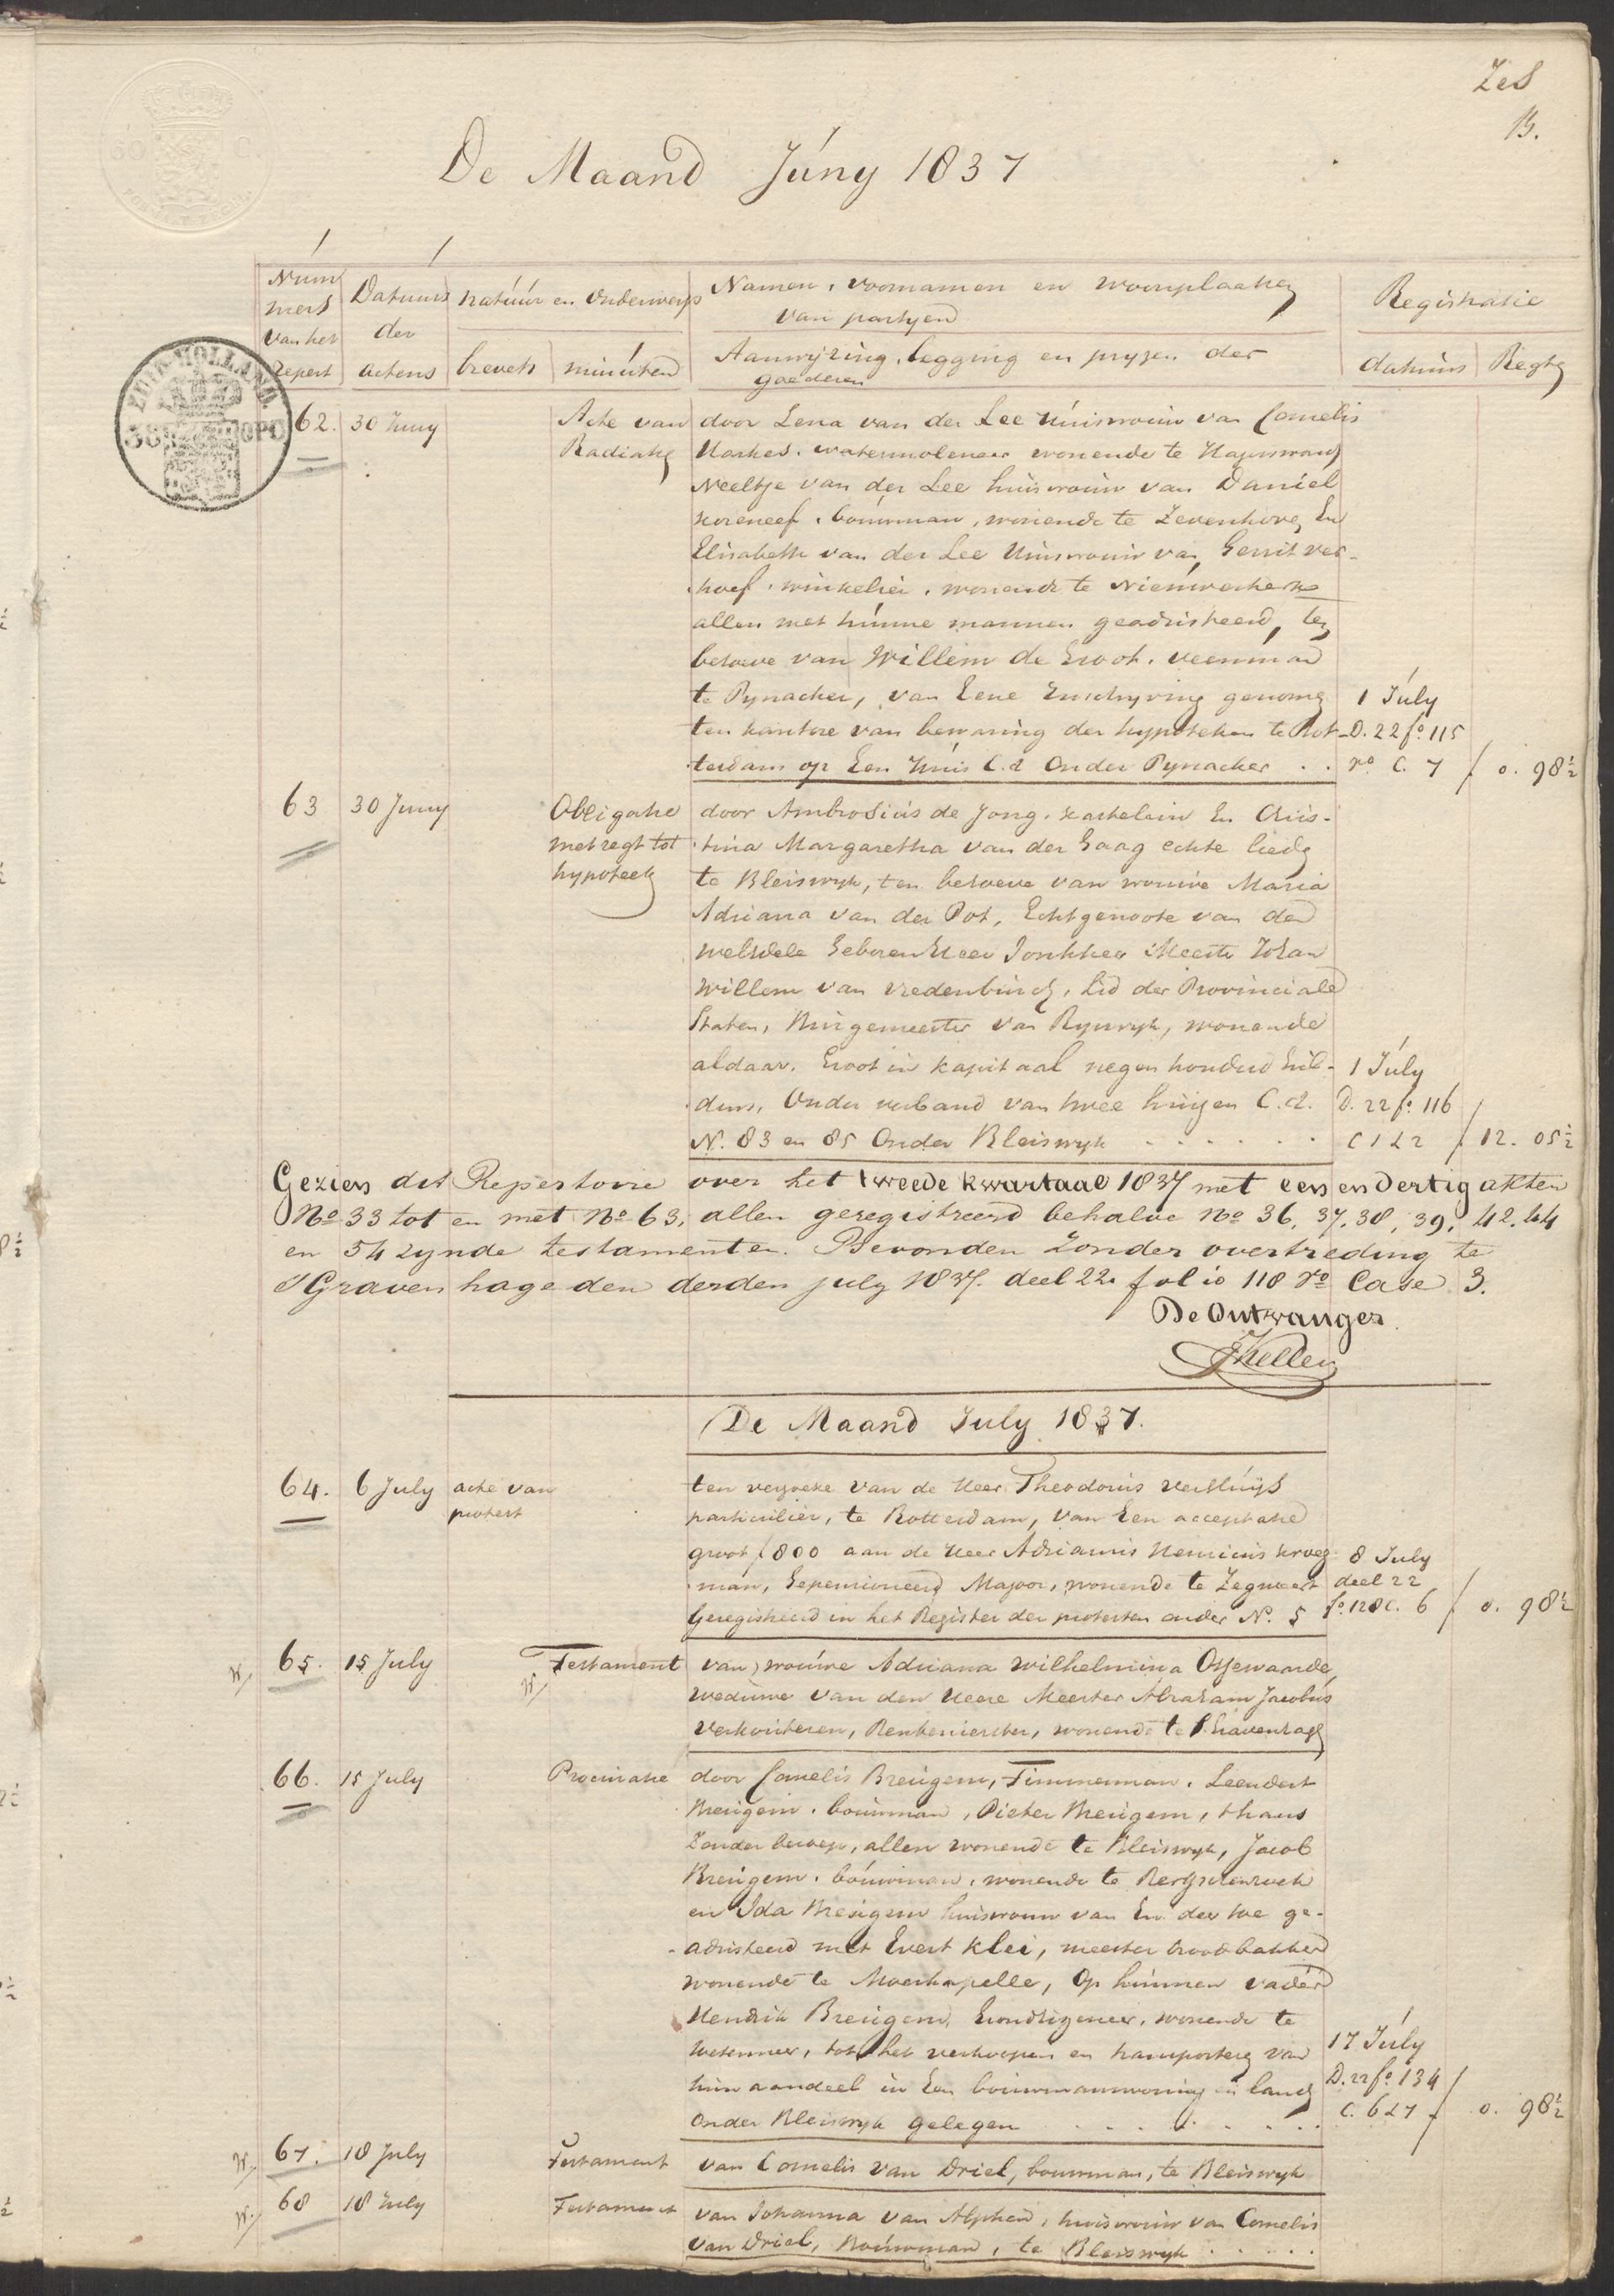 Zes
13.
De Maand Júny 1837
Num
mers
van het
Repert
Datums
der
actens
natúúr en Onderwerp
brevets
minúten
Namen, voornamen en woonplaatsen
van partyen
Aanwyzing, legging en pryzen der
goederen
Registratie
datums
Regten
ZUID HOLLAND
62. 30 Juny
Acte van
Radiatie
door Lena van der Lee húisvrouw van Cornelis
watermolenaar wonende te
Neeltje van der Lee huisvrouw van Daniel
Koreneef, boúwman, wonende te Zevenhove, En
Elisabeth van der Lee Huisvrouw van Gerrit ver-
hoef, winkelier, wonende te Nieúwerkerk
allen met húnne mannen geadsisteerd, ten
behoeve van Willem de Groot, veenman
te Pynacker, van Eene Inschryving genomen
ten kantore van bewaring der hypotheken te Rot-
terdam op Een Húis C.a Onder Pynacker . .
1 Júly
D. 22 fo. 115
ro C. 7
f 0. 98½
63 30 Juny
Obligatie
met regt tot
hypotheek
door Ambrosius de Jong, kastelein En Chris-
tina Margaretha van der Gaag echte lieden
te Bleiswyk, ten behoeve van vrouwe Maria
Adriana van der Pot, Echtgenoote van den
welEdele Geboren Heer Jonkheer Meester Johan
Willem van Vredenburch, Lid der Provinciale
Staten, Burgemeester van Ryswyk, wonende
aldaar. Groot in kapitaal negen honderd Gul-
dens, Onder verband van twee huizen C.a.
N. 83 en 85 Onder Bleiswyk . . . . . .
1 Júly
D. 22 fo. 116
C 1 & 2
f 12. 05½
Gezien dit Repertoire over het tweede kwartaal 1837 met een en dertig akten
No 33 tot en met No 63, allen geregistreerd behalve No 36, 37, 38, 39, 42, 44
en 54 zynde testamenten. Bevonden zonder overtreding te
s'Gravenhage den derden july 1837. deel 22 folio 118 ro Case 3.
De Ontvanger
De Maand July 1837.
64. 6 July acte van
protest
ten verzoeke van de Heer Theodorus Verslúijs
particulier, te Rotterdam, van Een acceptatie
groot f 800 aan de Heer Adrianus Henricus Kroeg-
man, Gepensioneerd Majoor, wonende te Zegwaart
Geregistreerd in het Register der protesten onder N. 5
8 July
deel 22
fo. 128 C. 6
f 0. 98½
W/ 65. 15 July
Testament
W/
van vrouwe Adriana Wilhelmina Ossewaarde,
weduwe van den Heere Meester Abraham Jacobús
Verkouteren, Rentenierster, wonende te s.Gravenhage
66. 15 July
Procuratie
door Cornelis Breúgem, Timmerman, Leendert
Breúgem, boúwman, Pieter Breúgem, thans
Zonder beroep, allen wonende te Bleiswyk, Jacob
Breúgem, boúwman, wonende te Bergschenhoek
en Ida Breúgem huisvrouw van En dertoe ge-
adsisteerd met Evert Klei, meester broodbakker
wonende te Moerkapelle, Op húnnen vader
Hendrik Breúgem, Grondeigenaar, wonende te
tot het verkoopen en transporteren van
hún aandeel in Een boúwmanswoning en land
onder Bleiswyk gelegen . . . . . .
17 Júly
D. 22 fo. 134
C. 6 & 7
f 0. 98½
W/ 67. 18 July
Testament
van Cornelis van Driel, bouwman, te Bleiswyk
W/ 68 18 July
Testament
van Johanna van Alphen, huisvrouw van Cornelis
van Driel, Boúwman, te Bleiswyk . . . . .